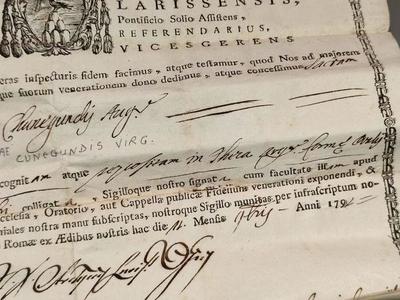 LARISSENSIS,
Pontificio Solio Assistens,
REFERENDARIUS,
VICESGERENS
eras inspecturis fidem facimus, atque testamur, quod Nos ad majorem
que suorum venerationem dono dedimus, atque concessimus Sacram
Cunegundis
AE CUNEGUNDIS VIRG.
cognitam atque repositam in theca
colligat, Sigilloque nostro signat cum facultate apud
cclesia, Oratorio, aut Cappella publicæ Fidelium venerationi exponendi, &
niales nostra manu subscriptas, nostroque Sigillo munitas per infrascriptum no-
Romæ ex Ædibus nostris hac die Mensis 7bris Anni 179